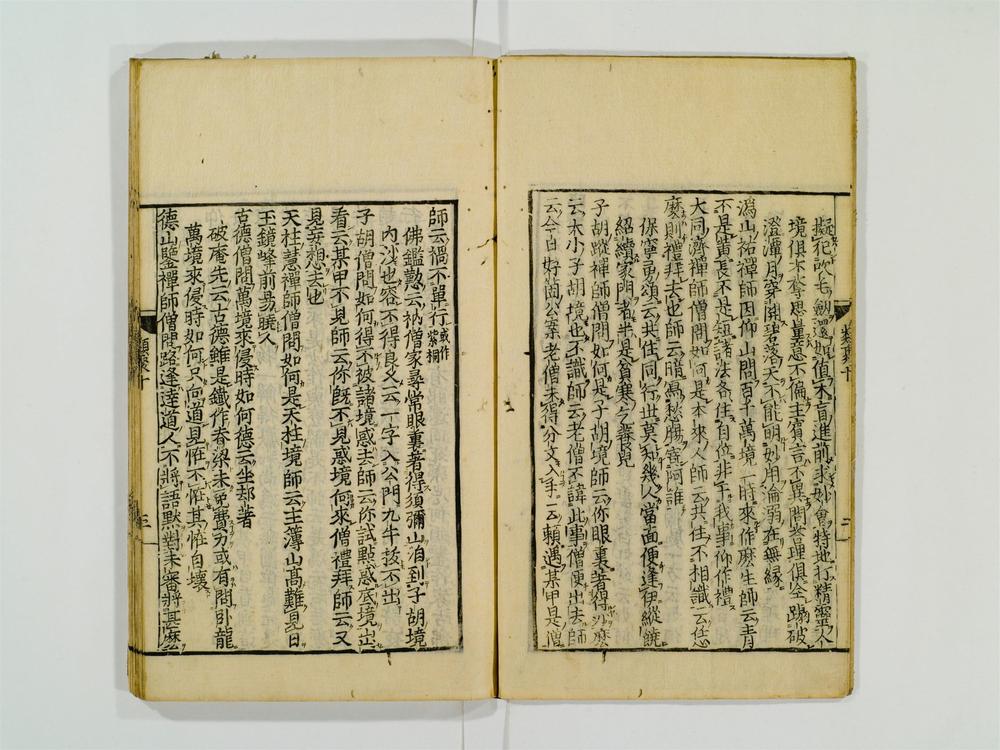 擬犯吹毛劍還如值木盲進前求妙會特地打精靈人
境俱不奪思量意不偏主賓言不異問答理俱全踢破
澄潭月穿開碧落天不能明妙用淪溺在無緣
溈山祐禪師因仰山問百千萬境一時來作麼生師云青
不是黃長不是短諸法各住自位非干我事仰作禮
大同濟禪師僧問如何是本來人師云共住不相識云恁
麼則禮拜去也師云暗寫愁腸寄阿誰
保寧勇頌云共住同行世莫和幾人當面便逢伊縱饒
紹續家門者半是貧寒乞養兒
子胡蹤禪師僧問如何是子胡境師云你眼裏著得沙麼
云大小子胡境也不識師云老僧不諱此事僧便出去師
云今日好箇公案老僧未得分文入手一云賴遇某甲是僧
師云禍不單行
佛鑑懃云衲僧家尋常眼裏著得須彌山洎到子胡境
內沙也容不得良久云一字入公門九牛拔不出
子胡僧問如何得不被諸境惑去師云你試點惑底境出
看云某甲不見師云你既不見惑境何來僧禮拜師云又
見妄想去也
天柱慧禪師僧問如何是天柱境師云主簿山高難見日
玉鏡峰前易曉人
古德僧問萬境來侵時如何德云坐却著
破菴先云古德雖是鐵作脊梁未免費力或有問臥龍
萬境來侵時如何只向道見怪不怪其怪自壞
德山鑒禪師僧問路逢達道人不將語默對未審將甚麼
類聚十
二
類聚十
三